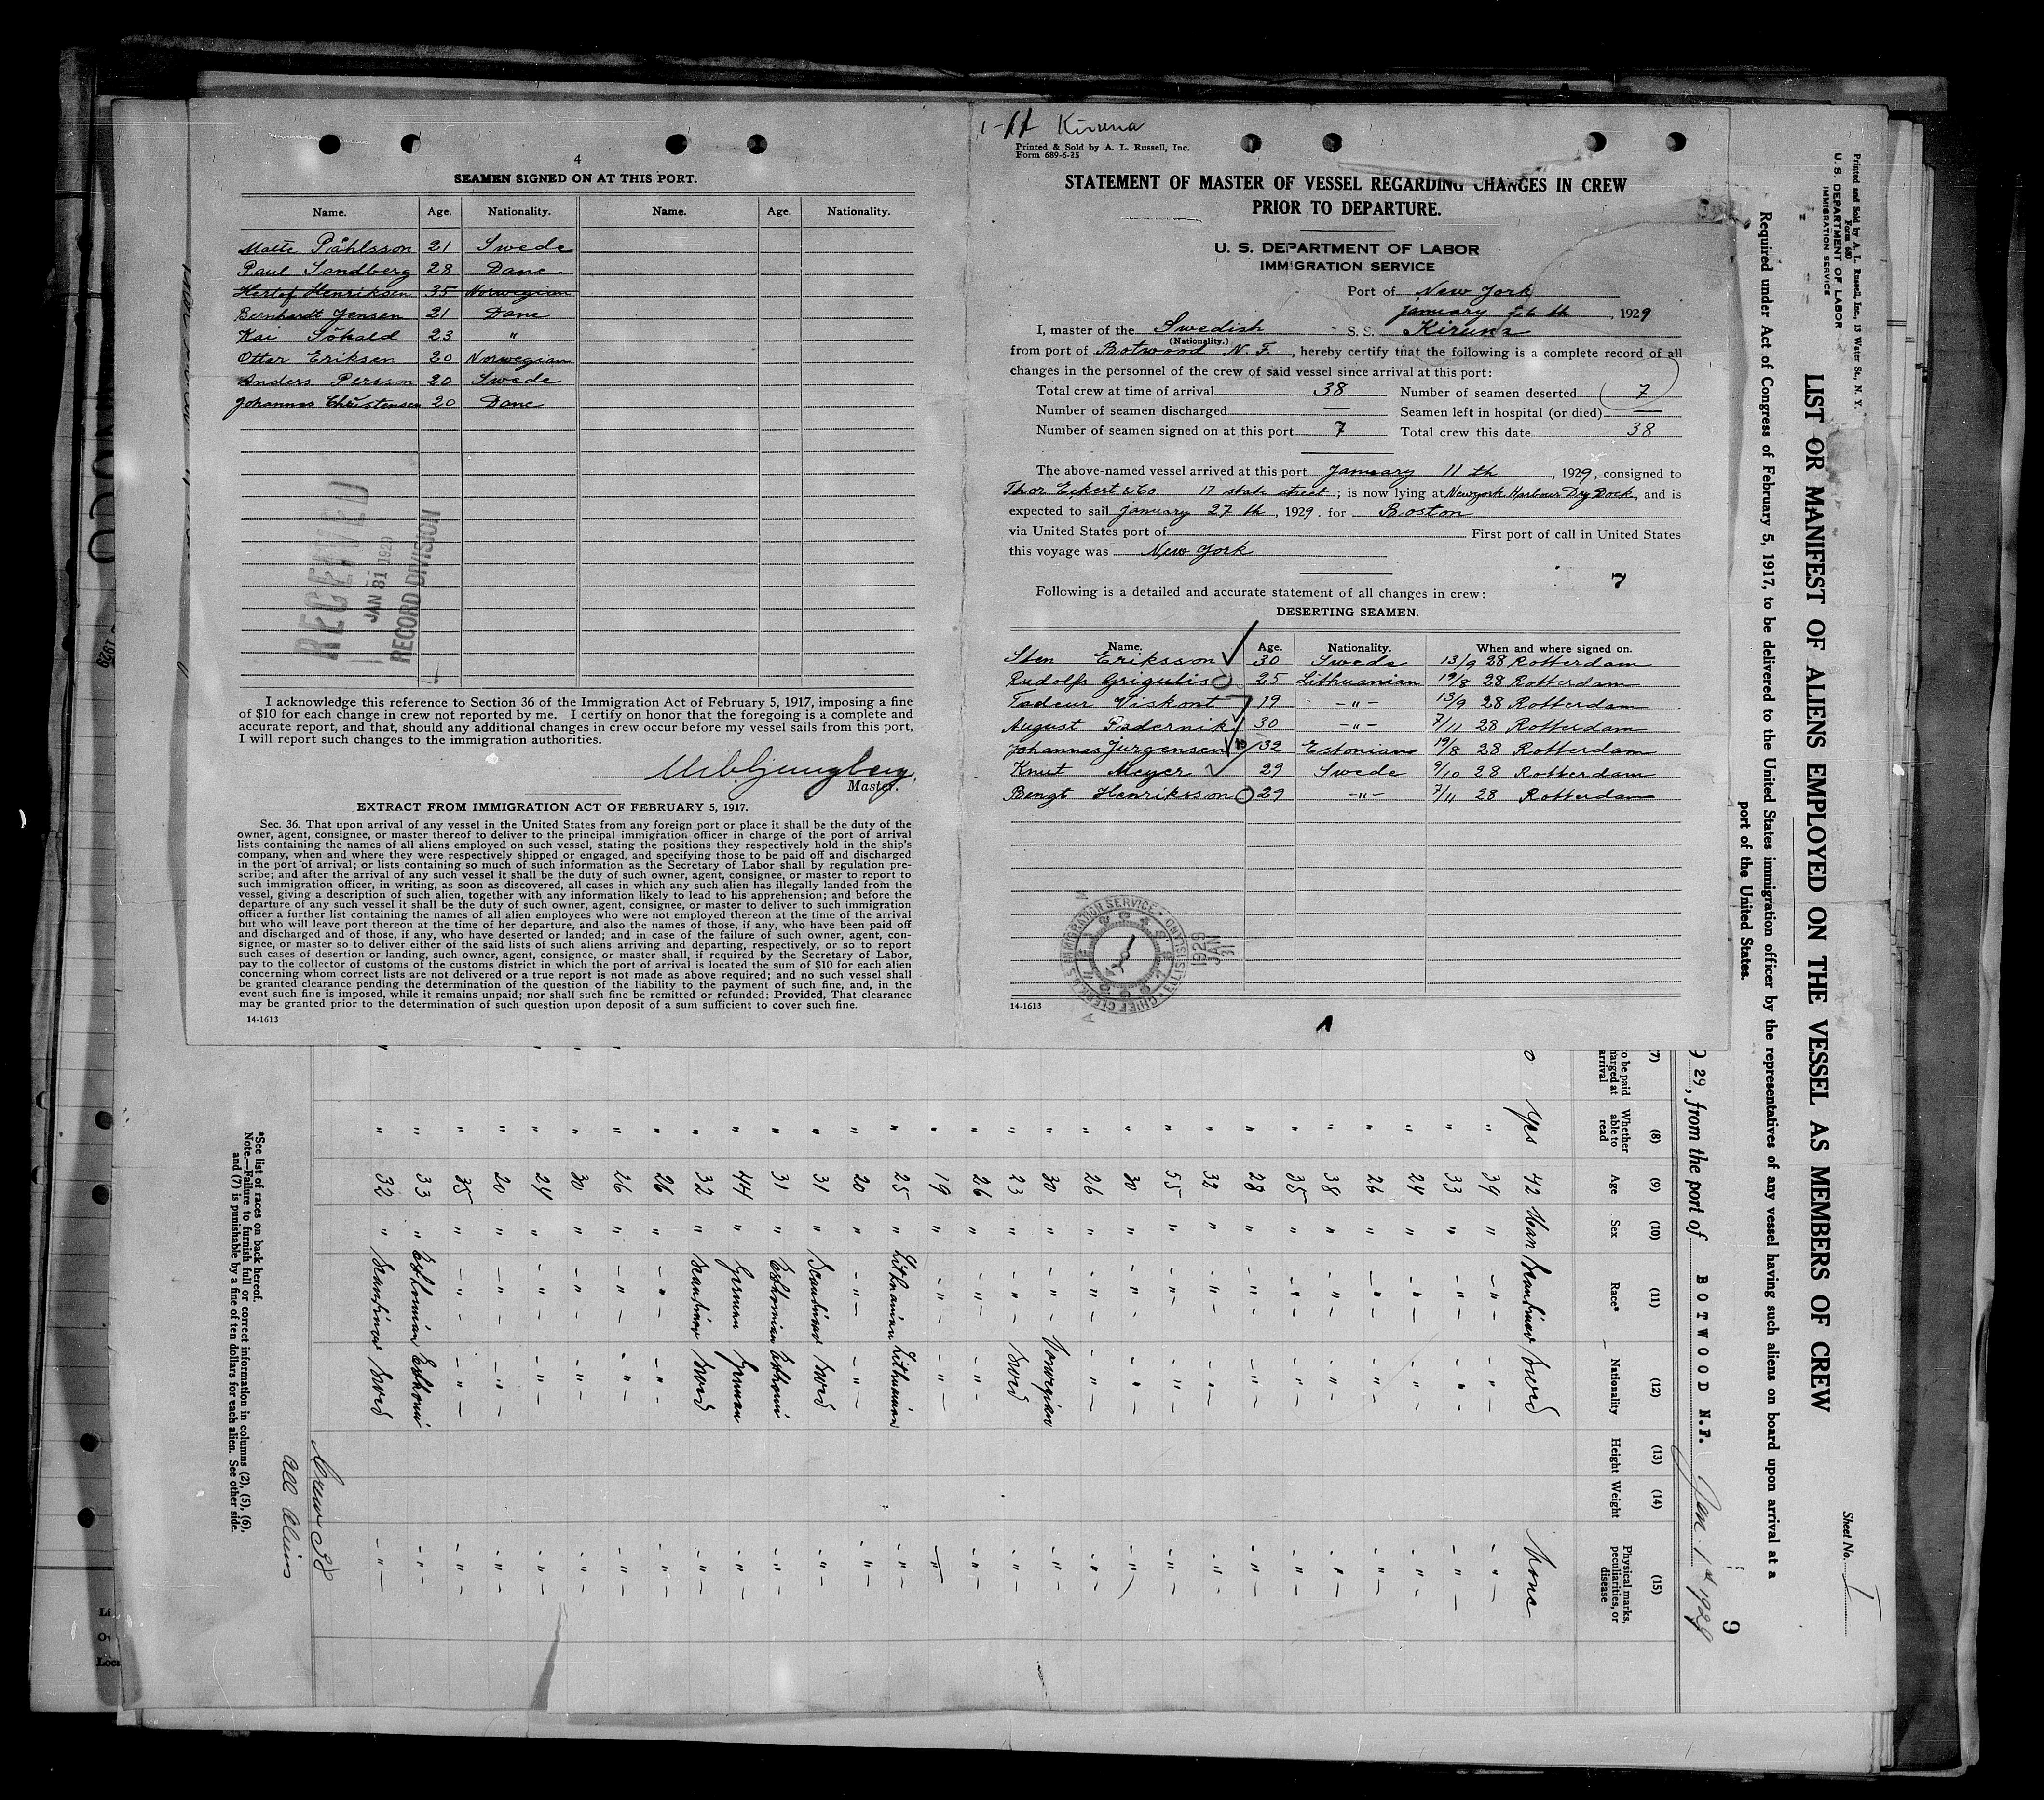 4
SEAMEN SIGNED ON AT THIS PORT.
Name. Age. Nationality. Name. Age. Nationality.
Malte Påhlsson 21 Swede
Paul Sandberg 28 Dane
Herlof Henriksen 35 Norwegian
Bernhardt Jensen 21 Dane
Kai 23 "
Ottar Eriksen 20 Norwegian
Anders Persson 20 Swede
Johannes Christensen 20 Dane
RECEIVED
JAN 31 1929
RECORD DIVISION
I acknowledge this reference to Section 36 of the Immigration Act of February 5, 1917, imposing a fine
of $10 for each change in crew not reported by me. I certify on honor that the foregoing is a complete and
accurate report, and that, should any additional changes in crew occur before my vessel sails from this port,
I will report such changes to the immigration authorities.
Master.
EXTRACT FROM IMMIGRATION ACT OF FEBRUARY 5, 1917.
Sec. 36. That upon arrival of any vessel in the United States from any foreign port or place it shall be the duty of the
owner, agent, consignee, or master thereof to deliver to the principal immigration officer in charge of the port of arrival
lists containing the names of all aliens employed on such vessel, stating the positions they respectively hold in the ship's
company, when and where they were respectively shipped or engaged, and specifying those to be paid off and discharged
in the port of arrival; or lists containing so much of such information as the Secretary of Labor shall by regulation pre-
scribe; and after the arrival of any such vessel it shall be the duty of such owner, agent, consignee, or master to report to
such immigration officer, in writing, as soon as discovered, all cases in which any such alien has illegally landed from the
vessel, giving a description of such alien, together with any information likely to lead to his apprehension; and before the
departure of any such vessel it shall be the duty of such owner, agent, consignee, or master to deliver to such immigration
officer a further list containing the names of all alien employees who were not employed thereon at the time of the arrival
but who will leave port thereon at the time of her departure, and also the names of those, if any, who have been paid off
and discharged and of those, if any, who have deserted or landed; and in case of the failure of such owner, agent, con-
signee, or master so to deliver either of the said lists of such aliens arriving and departing, respectively, or so to report
such cases of desertion or landing, such owner, agent, consignee, or master shall, if required by the Secretary of Labor,
pay to the collector of customs of the customs district in which the port of arrival is located the sum of $10 for each alien
concerning whom correct lists are not delivered or a true report is not made as above required; and no such vessel shall
be granted clearance pending the determination of the question of the liability to the payment of such fine, and, in the
event such fine is imposed, while it remains unpaid; nor shall such fine be remitted or refunded: Provided, That clearance
may be granted prior to the determination of such question upon deposit of a sum sufficient to cover such fine.
14-1613
Kiruna
Printed & Sold by A. L. Russell, Inc.
Form 689-6-25
STATEMENT OF MASTER OF VESSEL REGARDING CHANGES IN CREW
PRIOR TO DEPARTURE.
U. S. DEPARTMENT OF LABOR
IMMIGRATION SERVICE
Port of New York
january 26 th, 1929
I, master of the Swedish S. S. Kiruna
(Nationality.)
from port of Botwood N. F., hereby certify that the following is a complete record of all
changes in the personnel of the crew of said vessel since arrival at this port:
Total crew at time of arrival 38 Number of seamen deserted 7
Number of seamen discharged — Seamen left in hospital (or died) —
Number of seamen signed on at this port 7 Total crew this date 38
The above-named vessel arrived at this port January 11 th, 1929, consigned to
Thor Eckert & Co 17 state street; is now lying at Newyork Harbour Dry Dock, and is
expected to sail january 27 th, 1929. for Boston
via United States port of First port of call in United States
this voyage was New York
7
Following is a detailed and accurate statement of all changes in crew:
DESERTING SEAMEN.
Name. Age. Nationality. When and where signed on.
Sten Eriksson 30 Swede 13/9 28 Rotterdam
Rudolfs Grigulis 25 Lithuanian 19/8 28 Rotterdam
Tadeur Viskont 19 -"- 13/9 28 Rotterdam
August Padernik 30 -"- 7/11 28 Rotterdam
Johannes Jürgensen 32 Estonians 19/8 28 Rotterdam
Knut Meyer 29 Swede 9/10 28 Rotterdam
Bengt Henriksson 29 -"- 7/11 28 Rotterdam
CHIEF CLERK U.S. IMMIGRATION SERVICE ELLIS ISLAND
1929
JAN
31
14-1613
Printed and Sold by A. L. Russell, Inc., 13 Water St., N. Y.
Form 680
U. S. DEPARTMENT OF LABOR
IMMIGRATION SERVICE
Sheet No. I
LIST OR MANIFEST OF ALIENS EMPLOYED ON THE VESSEL AS MEMBERS OF CREW
Required under Act of Congress of February 5, 1917, to be delivered to the United States immigration officer by the representatives of any vessel having such aliens on board upon arrival at a
port of the United States.
9
29, from the port of BOTWOOD N.F. Jan. 1st 1929
(7) (8) (9) (10) (11) (12) (13) (14) (15)
to be paid Whether able to read Age Sex Race* Nationality Height Weight Physical marks, peculiarities, or disease
yes 42 Man Swed None
" 39 "
" 33 "
" 24 "
" 26 "
" 38 "
" 35 "
" 28 "
" 32 "
" 55 "
" 30 "
" 26 "
" 30 " Norwegian
" 23 " Swed
" 26 "
" 19 "
" 25 " Lithuanian Lithuanian
" 20 "
" 31 " Swed
" 31 "
" 44 " German German
" 32 " Swed
" 26 "
" 26 "
" 30 "
" 24 "
" 20 "
" 35 "
" 33 "
" 32 " Swed
Crew 38
all aliens
*See list of races on back hereof.
Note.—Failure to furnish full or correct information in columns (2), (5), (6),
and (7) is punishable by a fine of ten dollars for each alien. See other side.